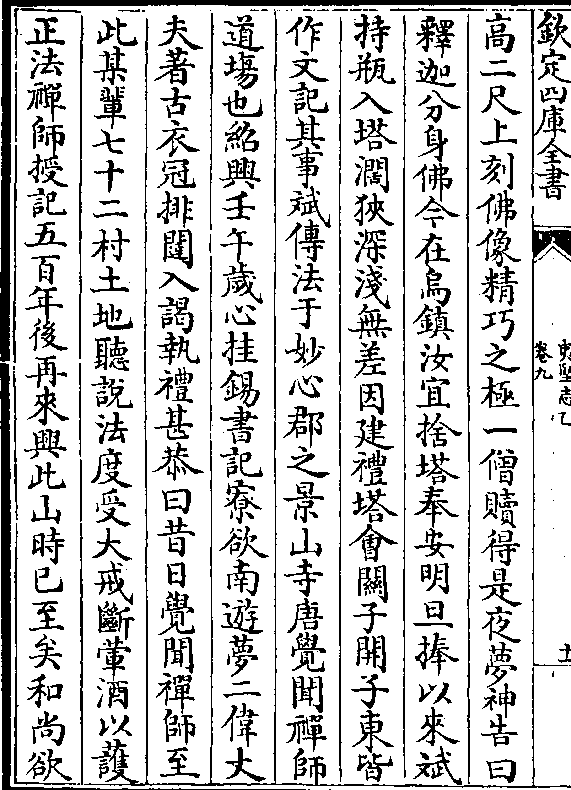 欽定四庫全書
夷堅志乙
卷九
十一
高二尺上刻佛像精巧之極一僧贖得是夜夢神告曰
釋迦分身佛今在烏鎮汝宜捨塔奉安明旦捧以來斌
持瓶入塔濶狹深淺無差因建禮塔會闗子開子東皆
作文記其事斌傳法于妙心郡之景山寺唐覺聞禪師
道塲也紹興壬午歲心挂錫書記寮欲南遊夢二偉大
夫著古衣冠排闥入謁執禮甚恭曰昔日覺聞禪師至
此某輩七十二村土地聽說法度受大戒斷葷酒以䕶
正法禪師授記五百年後再來興此山時已至矣和尚欲